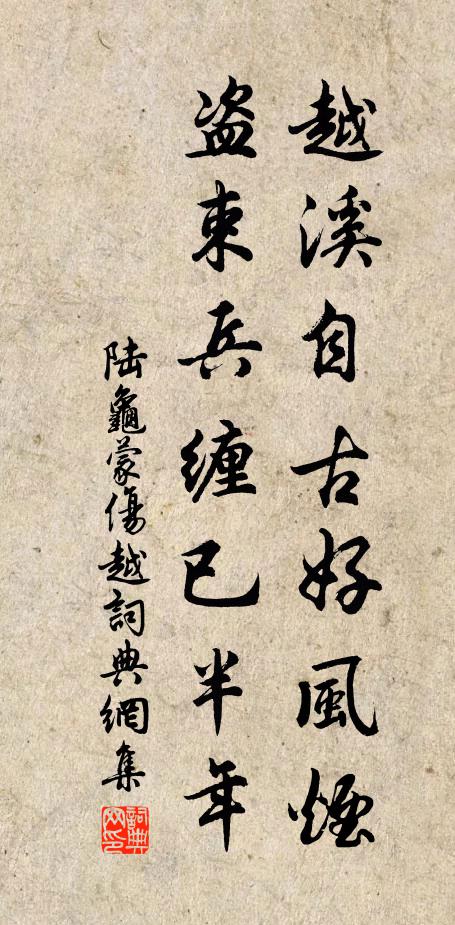 越溪自古好風煙
盜束兵纏已半年
陸龜蒙傷越詞典網集
詞典网印